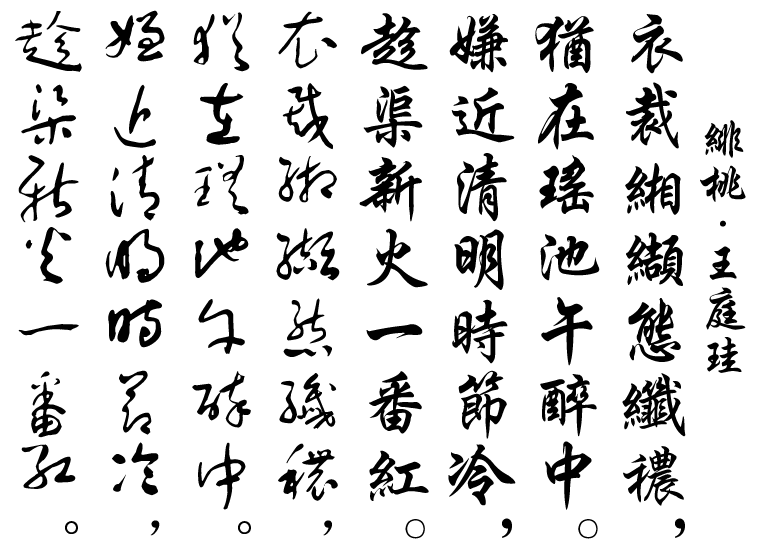 緋桃·王庭珪
衣裁緗纈態纖穠，
猶在瑤池午醉中。
嫌近清明時節冷，
趁渠新火一番紅。
衣裁緗纈態纖穠，
猶在瑤池午醉中。
嫌近清明時節冷，
趁渠新火一番紅。